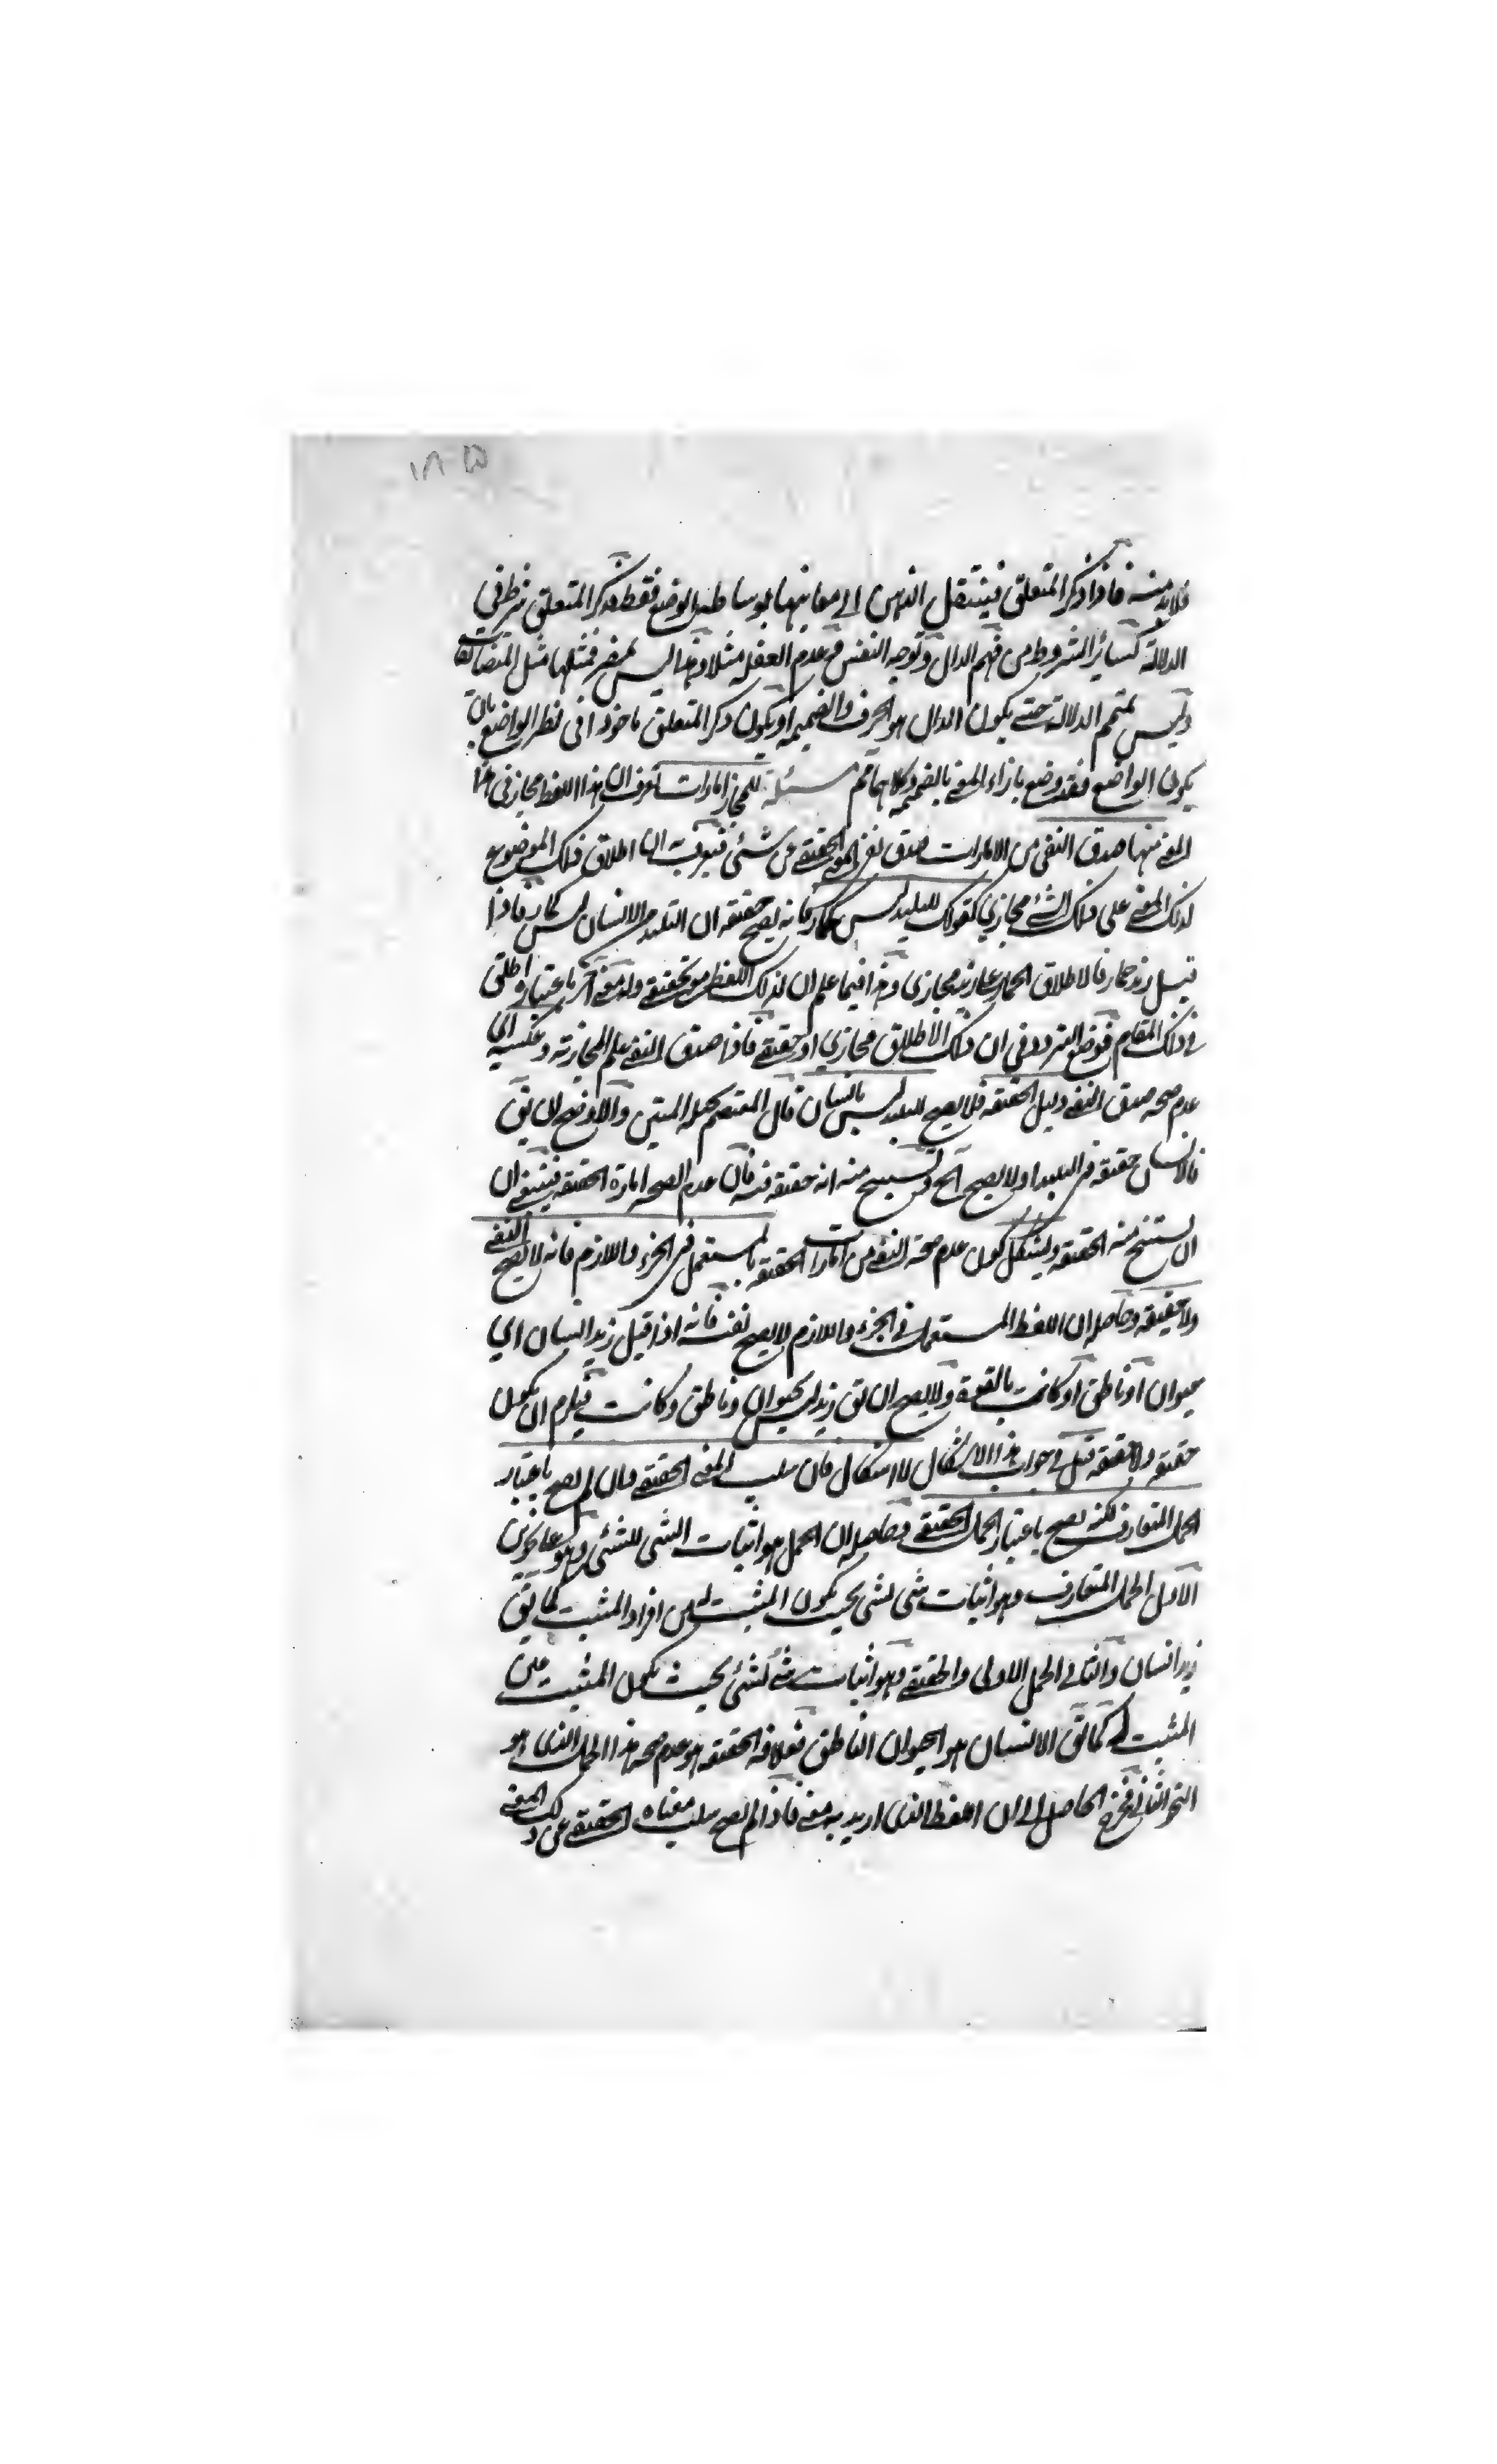 ١٨٥
فلا بد منه فاذا ذكر المتعلق فينتقل الذهن الى معانيها بوساطة الوضع فقط فذكر المتعلق شرط في
الدلالة كسائر الشروط من فهم الدال وتوجه النفس وعدم الغفلة مثلا وهذا ليس بمضر فمثلها مثل المتضائفات
وليس بمتمم الدلالة حتى يكون الدال هو الحرف والضميمة او يكون ذكر المتعلق ماخوذا في نظر الواضع بان
يكون الواضع فقد وضع بازاء المعنى بالضميمة وكلاهما مسئلة للمجاز امارات تعرف ان هذا اللفظ مجاز في هذا
المعنى منها صدق النفي من الامارات صدق نفي المعنى الحقيقي عن شئ فيعرف به ان اطلاق ذلك الموضوع
لذلك المعنى على ذلك الشئ مجازي كقولك للبليد ليس بحمار فانه يصح حقيقة ان البليد من الانسان ليس بحمار فاذا
قيل زيد حمار فالاطلاق الحمار على زيد مجازى وهذا فيما علم ان لذلك اللفظ معنى حقيقى وله معنى آخر باعتباره اطلق
في ذلك المقام فوقع التردد في ان ذلك الاطلاق مجازي او حقيقي فاذا صدق النفي علم المجازية وعكسه اي
عدم صحة صدق النفي دليل الحقيقة فلا يصح للبليد ليس بانسان قال المعتصم بحبله المتين والاوضح ان يق
فالانسان حقيقة في البليد او لا يصح الخ وتستنتج منه انه حقيقة فيه فان عدم الصحة امارة الحقيقة فينبغي ان
ان يستنتج منه الحقيقة ويشكل كون عدم صحة النفي من امارات الحقيقة بالمستعمل في الجزء واللازم فانه لا يصح النفي
ولا حقيقة وحاصله ان اللفظ المستعمل في الجزء واللازم لا يصح نفيه فانه اذا قيل زيد انسان اي
حيوان او ناطق او كاتب بالقوة ولا يصح ان يق زيد ليس بحيوان وناطق وكاتب فيلزم ان يكون
حقيقة ولا حقيقة قيل في جواب هذا الاشكال لا اشكال فان سلب المعنى الحقيقي وان لم يصح باعتبار
الحمل المتعارف لكنه يصح باعتبار الحمل الحقيقي وحاصله ان الحمل هو اثبات الشي للشئ وهو على نحوين
الاول الحمل المتعارف وهو اثبات شي لشي بحيث يكون المثبت له من افراد المثبت كما يق
زيد انسان والثاني الحمل الاولى والحقيقي وهو اثبات شئ لشئ بحيث يكون المثبت عين
المثبت له كما يق الانسان هو الحيوان الناطق فعلاقة الحقيقة هو عدم صحة هذا الحمل الذي هو
النحو الثاني فخرج الحاصل الى ان اللفظ الذي اريد به معنى فاذا لم يصح سلب معناه الحقيقي عن ذلك المعنى